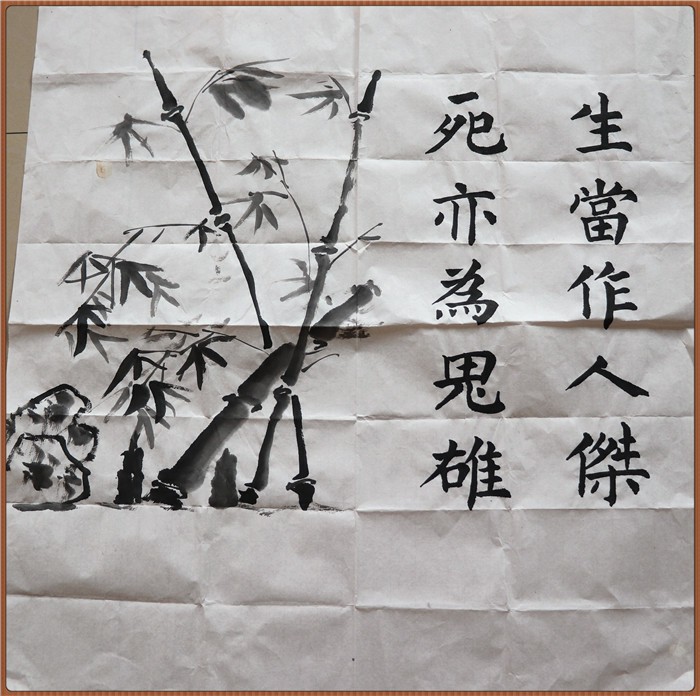 生當作人傑
死亦為鬼雄